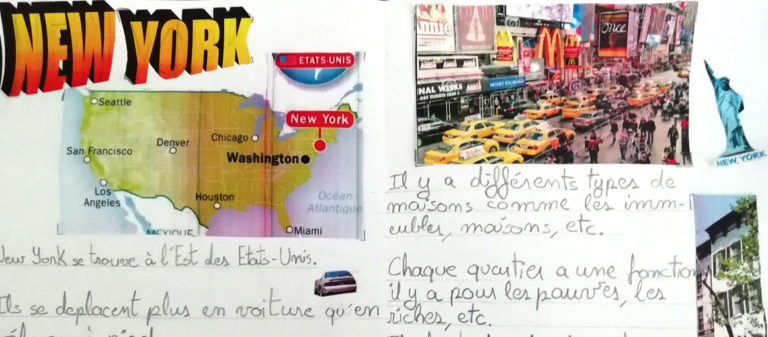 NEW YORK
ETATS-UNIS
Seattle
New York
Chicago
Denver
San Francisco
Washington
Los
Angeles
Houston
Océan
Atlantique
MEXIQUE
Miami
New York se trouve à l'Est des Etats-Unis.
Ils se deplacent plus en voiture qu'en
Annie
once
MONEY EXCHANGE
NEW YORK
Il y a différents types de
maisons comme les imm-
eubles, maisons, etc.
Chaque quartier a une fonction
il y a pour les pauvres, les
riches, etc.